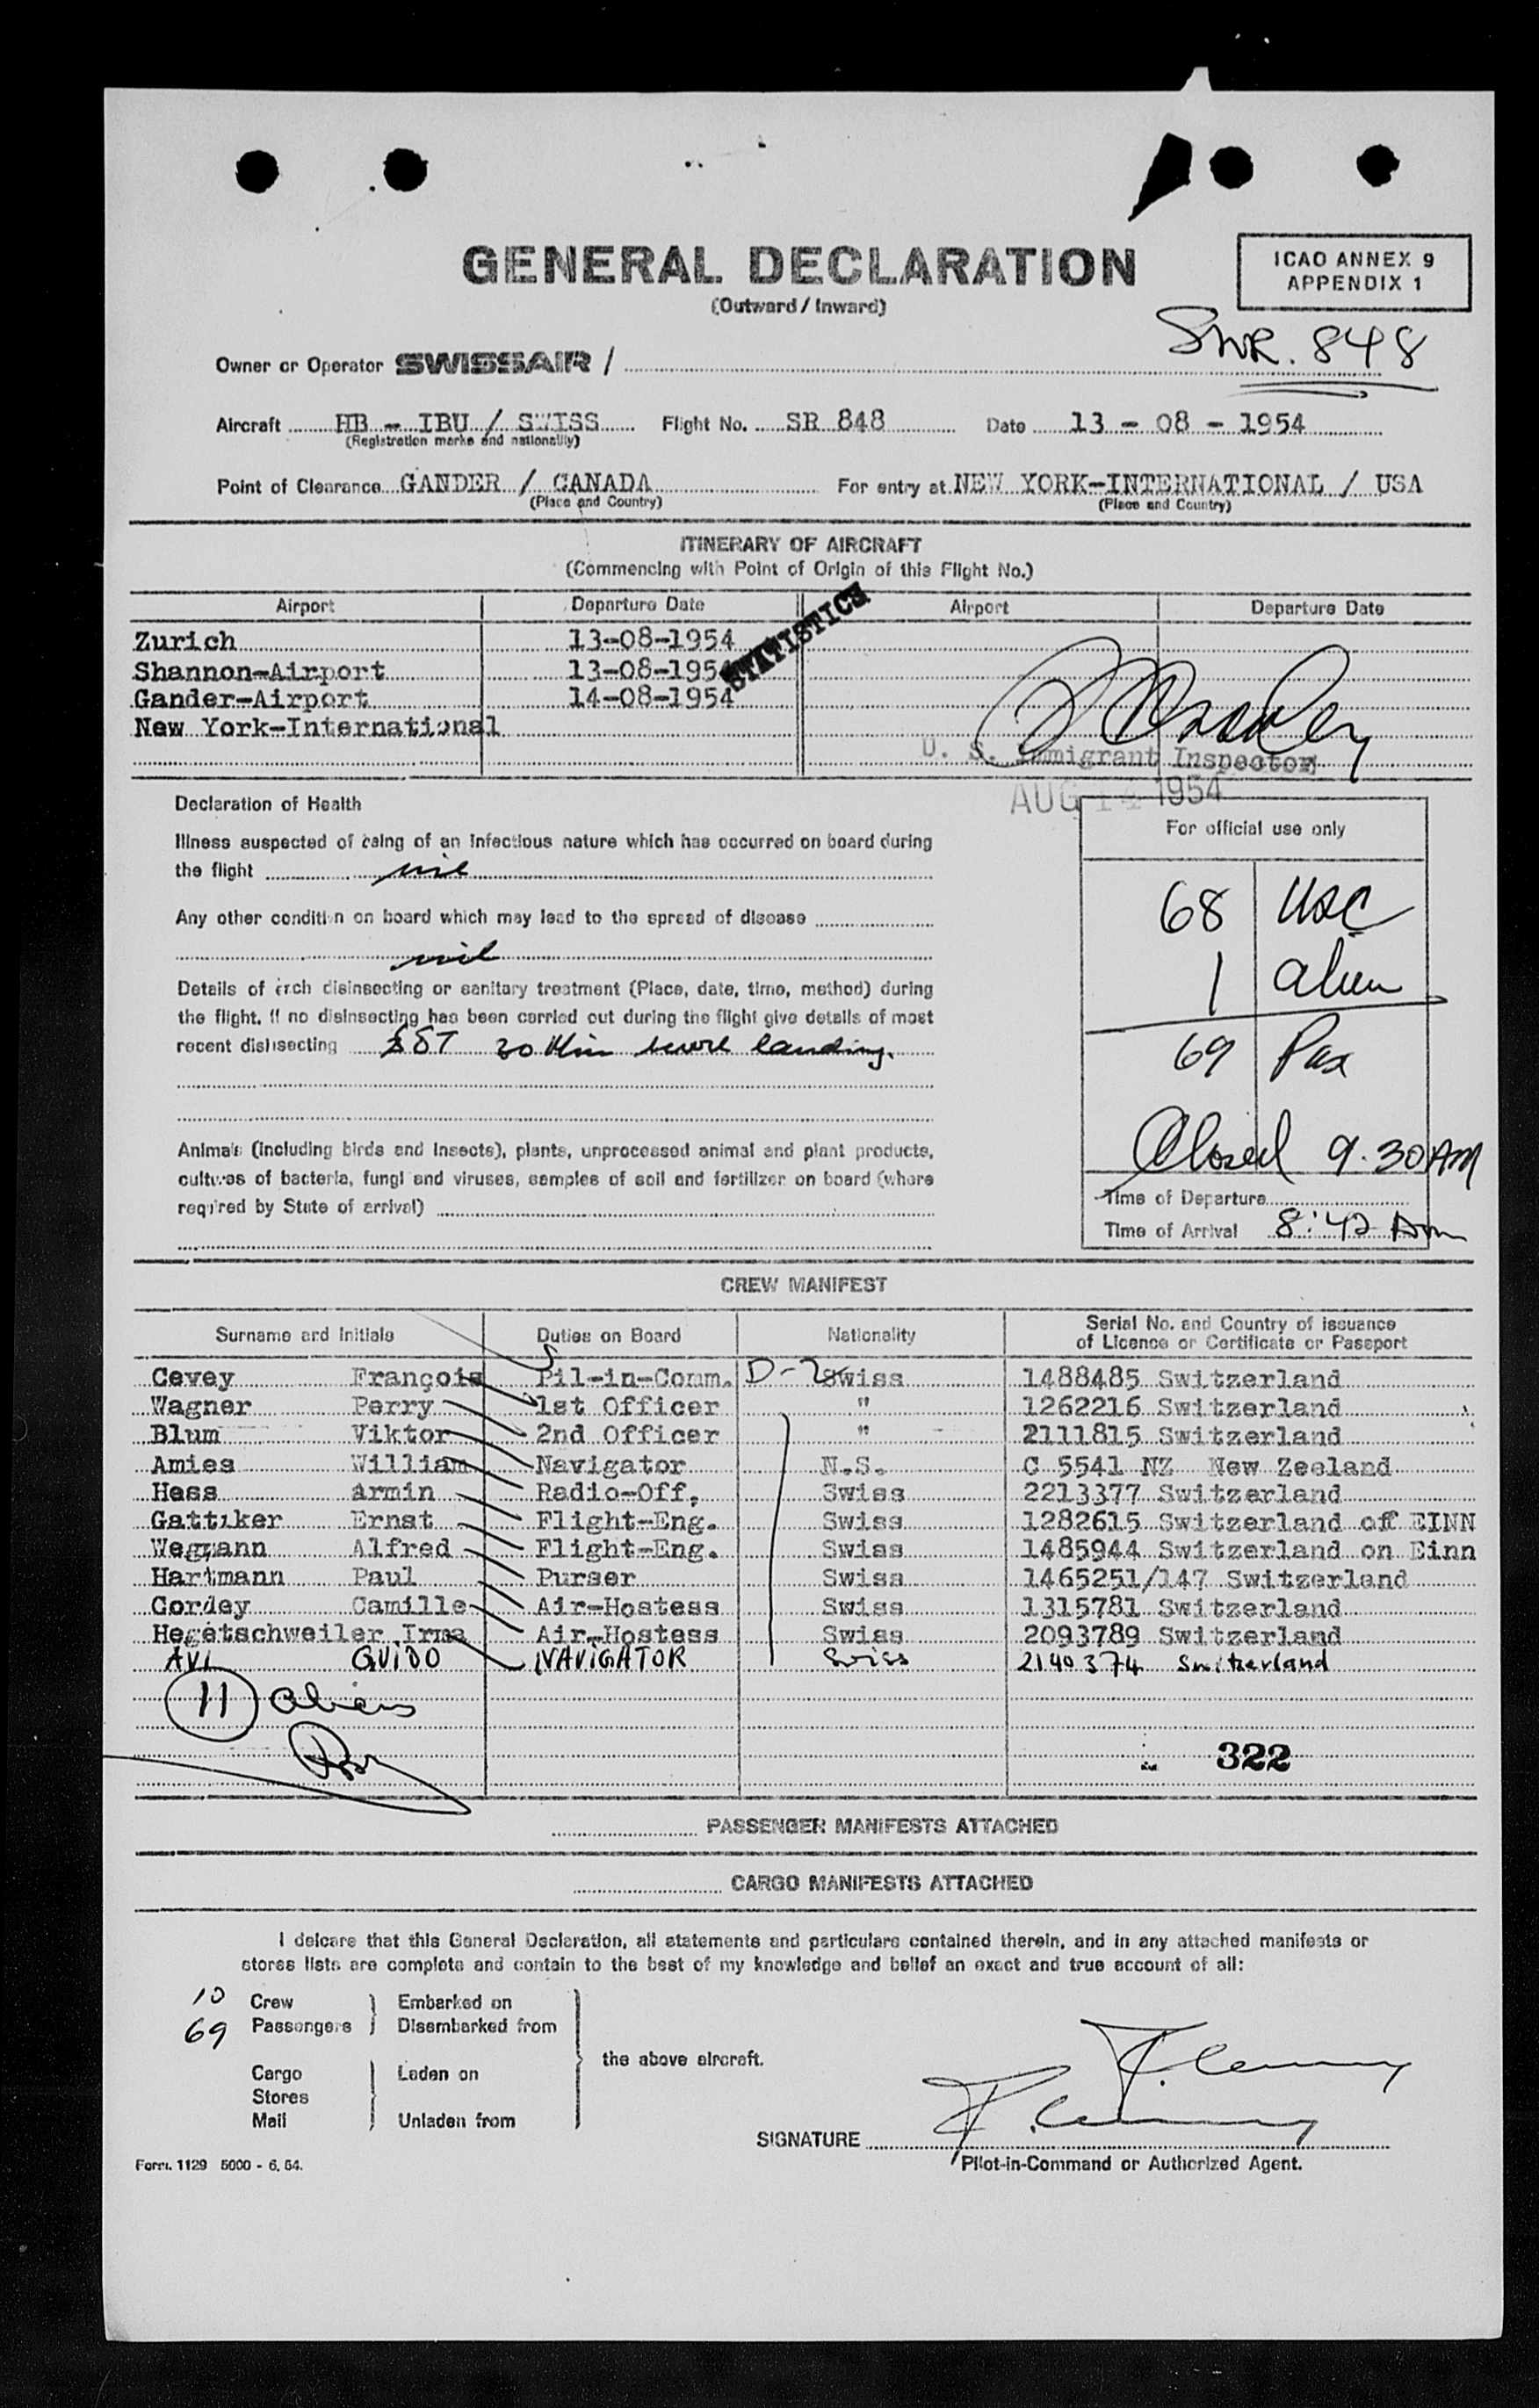 GENERAL DECLARATION
(Outward / Inward)
ICAO ANNEX 9
APPENDIX 1
SWR. 848
Owner or Operator SWISSAIR /
Aircraft HB - IBU / SWISS Flight No. SR 848 Date 13 - 08 - 1954
(Registration marks and nationality)
Point of Clearance GANDER / CANADA For entry at NEW YORK-INTERNATIONAL / USA
(Place and Country) (Place and Country)
ITINERARY OF AIRCRAFT
(Commencing with Point of Origin of this Flight No.)
Airport Departure Date Airport Departure Date
Zurich 13-08-1954
Shannon-Airport 13-08-1954
Gander-Airport 14-08-1954
New York-International
STATISTICS
U. S. Immigrant Inspector
AUG 14 1954
Declaration of Health
Illness suspected of being of an infectious nature which has occurred on board during
the flight nil
Any other condition on board which may lead to the spread of disease
nil
Details of each disinsecting or sanitary treatment (Place, date, time, method) during
the flight. If no disinsecting has been carried out during the flight give details of most
recent disinsecting 30 Min landing.
Animals (including birds and insects), plants, unprocessed animal and plant products,
cultures of bacteria, fungi and viruses, samples of soil and fertilizer on board (where
required by State of arrival)
For official use only
68 USC
1 alien
69 Pax
Closed 9.30 AM
Time of Departure
Time of Arrival 8:42 Am
CREW MANIFEST
Surname and Initials Duties on Board Nationality Serial No. and Country of issuance
of Licence or Certificate or Passport
Cevey François Pil-in-Comm. D-2 Swiss 1488485 Switzerland
Wagner Perry 1st Officer " 1262216 Switzerland
Blum Viktor 2nd Officer " 2111815 Switzerland
Amies William Navigator N.S. C 5541 NZ New Zeeland
Hess Armin Radio-Off. Swiss 2213377 Switzerland
Gattiker Ernst Flight-Eng. Swiss 1282615 Switzerland off EINN
Wegmann Alfred Flight-Eng. Swiss 1485944 Switzerland on Einn
Hartmann Paul Purser Swiss 1465251/147 Switzerland
Cordey Camille Air-Hostess Swiss 1315781 Switzerland
Hegetschweiler Irma Air-Hostess Swiss 2093789 Switzerland
AVI GUIDO NAVIGATOR Swiss 2140374 Switzerland
11 aliens
322
PASSENGER MANIFESTS ATTACHED
CARGO MANIFESTS ATTACHED
I delcare that this General Declaration, all statements and particulars contained therein, and in any attached manifests or
stores lists are complete and contain to the best of my knowledge and belief an exact and true account of all:
10 Crew Embarked on
69 Passengers Disembarked from
the above aircraft.
Cargo Laden on
Stores
Mail Unladen from
SIGNATURE
Pilot-in-Command or Authorized Agent.
Form. 1129 5000 - 6. 54.